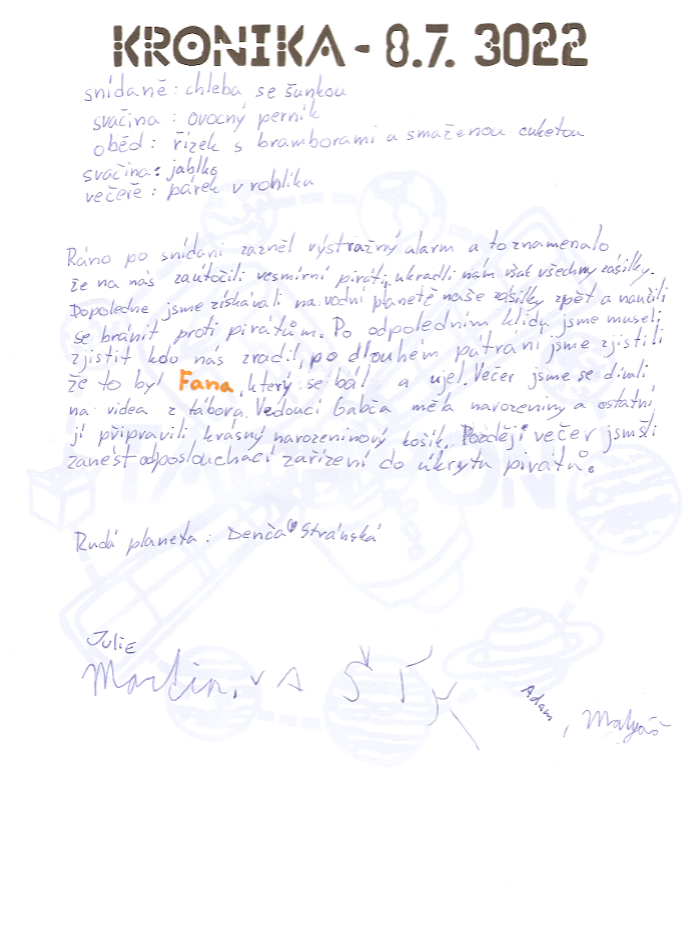 KRONIKA - 8.7. 3022
snídaně : chleba se šunkou
svačina : ovocný perník
oběd : řízek s bramborami a smaženou cuketou
svačina: jablko
večeře : párek v rohlíku
Ráno po snídani zazněl výstražný alarm a to znamenalo
že na nás zaútočili vesmírní piráti, ukradli nám však všechny zásilky.
Dopoledne jsme získávali na vodní planetě naše zásilky zpět a naučili
se bránit proti pirátům. Po odpoledním klidu jsme museli
zjistit kdo nás zradil, po dlouhém pátraní jsme zjistili
že to byl Fana, který se bál a ujel. Večer jsme se dívali
na videa z tábora. Vedoucí Gabča měla narozeniny a ostatní
jí připravili krásný narozeninový košík. Později večer jsmšli
zanést odposlouchací zařízení do úkrytu pirátů.
Rudá planeta : Denča Stránská
Julie
Adam, Matyáš